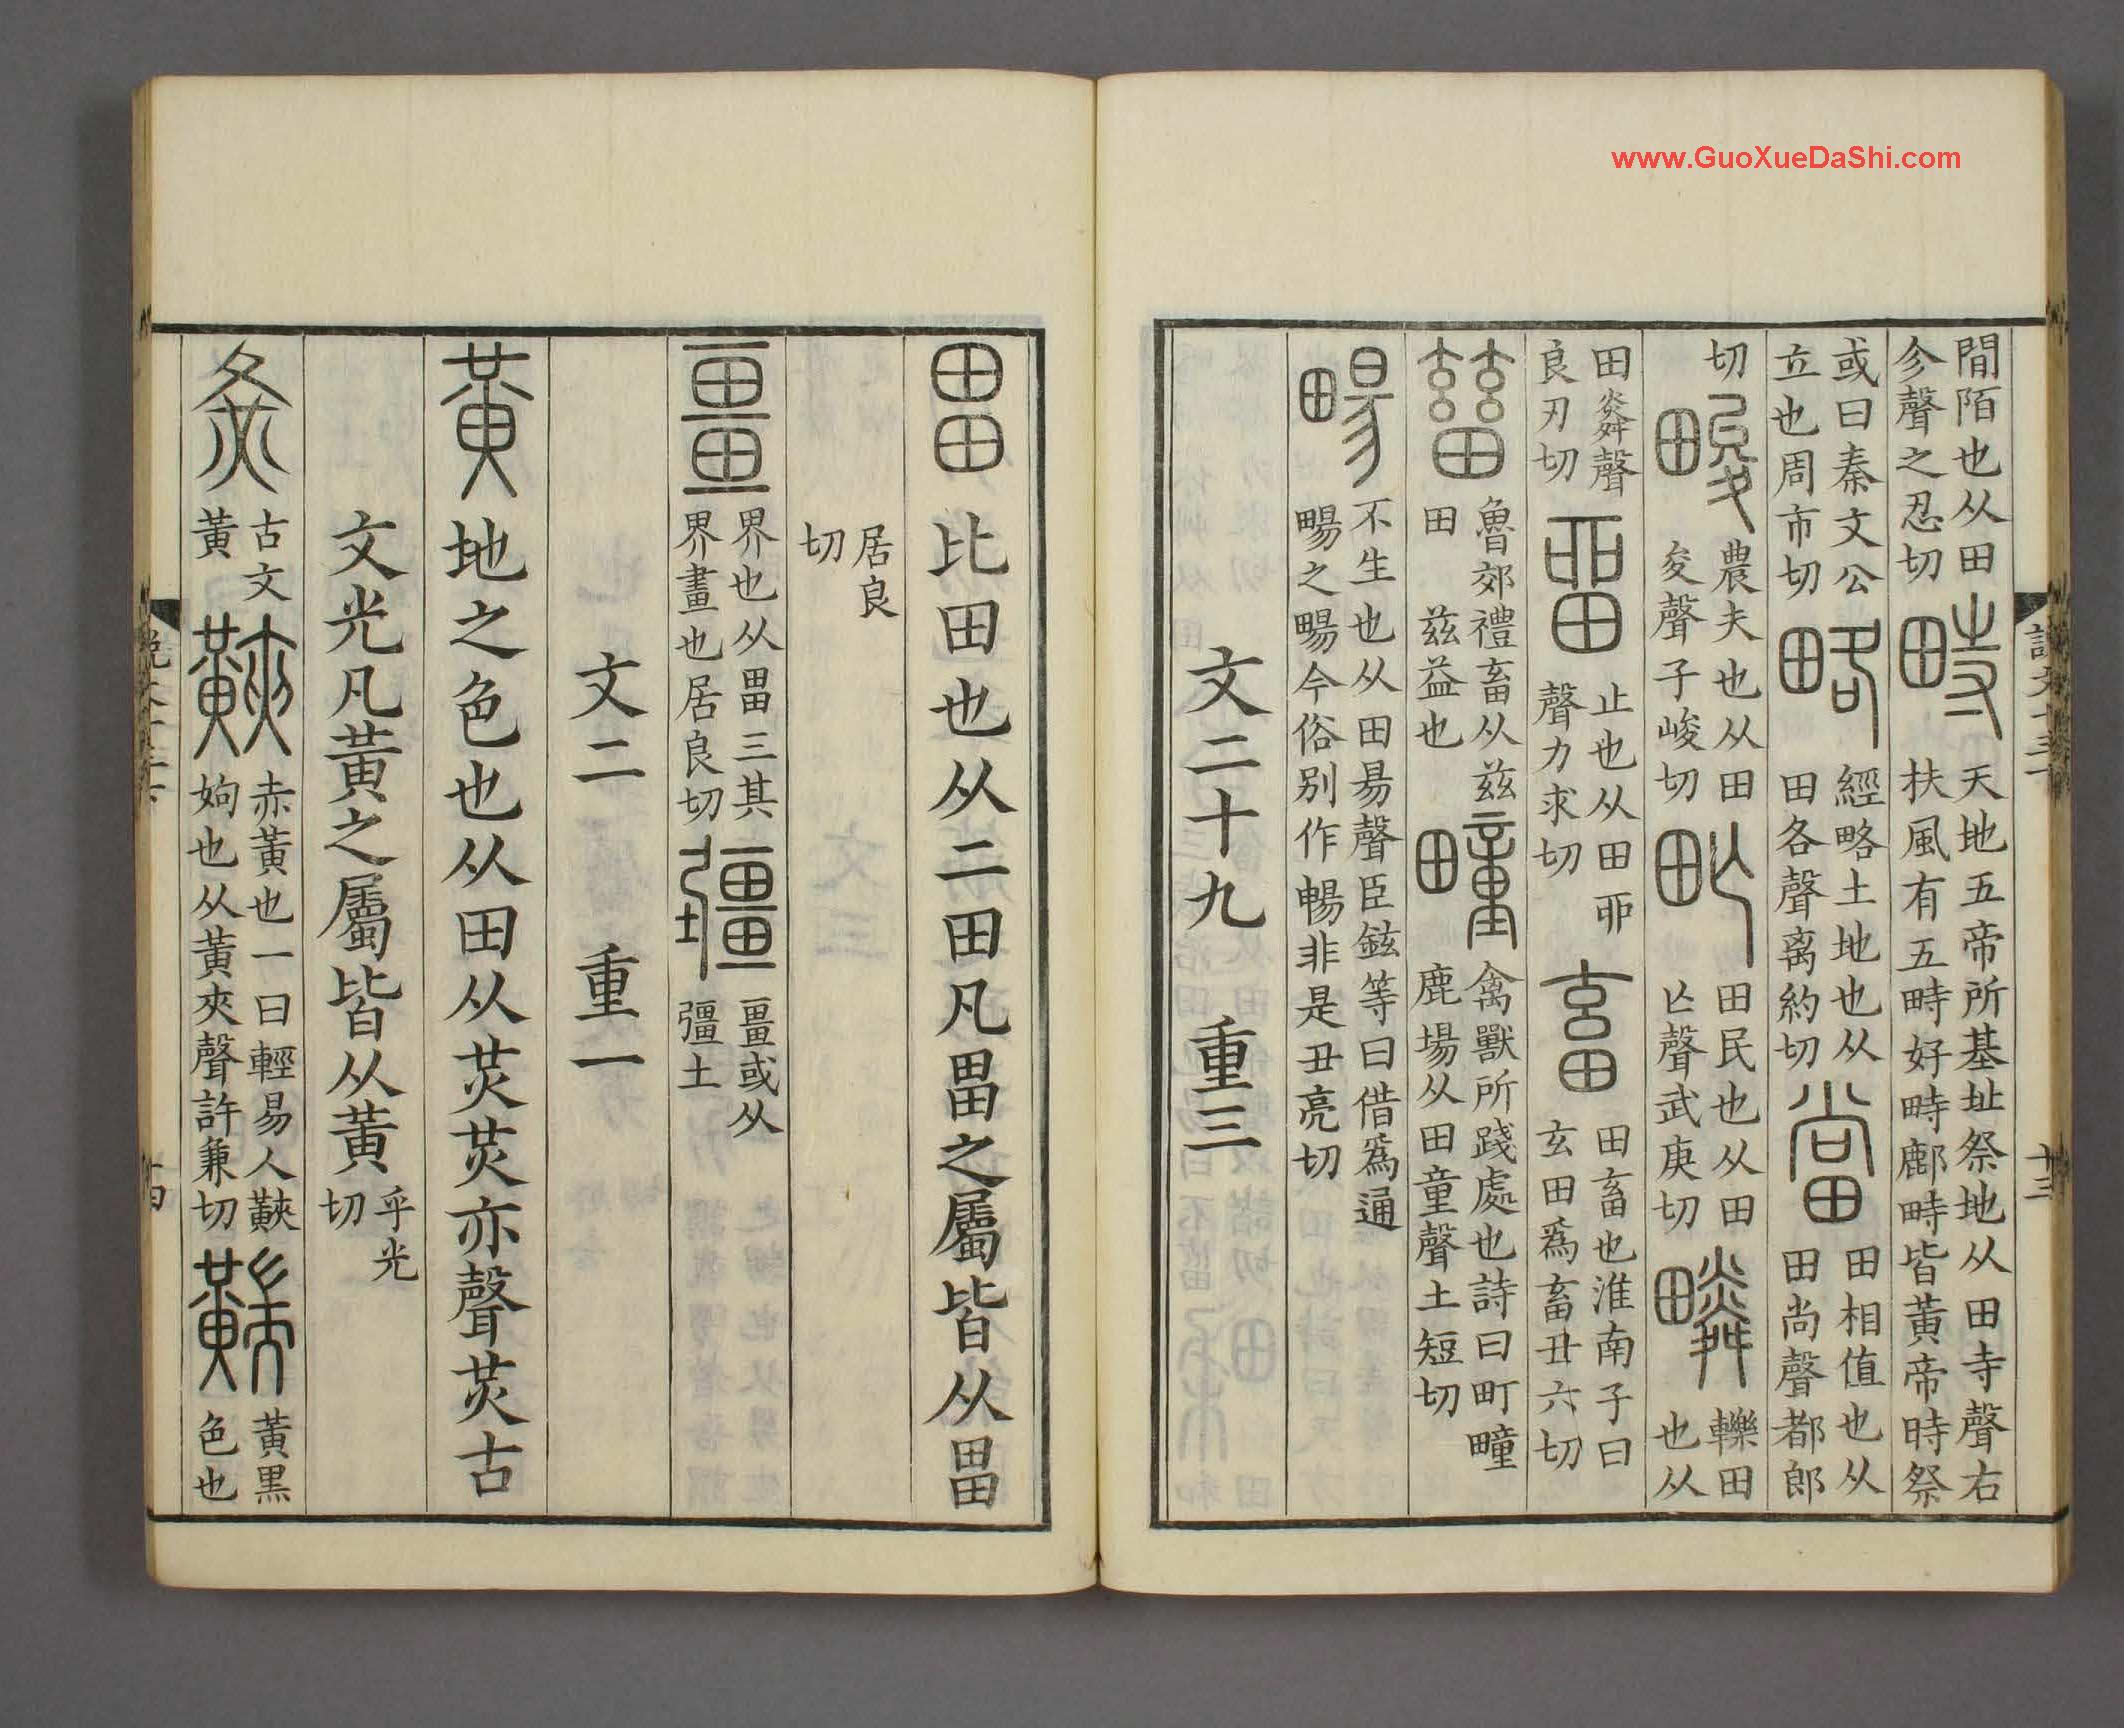 www.GuoXueDaShi.com
說文十三下
十三
閒陌也从田㐱聲之忍切畤天地五帝所基址祭地从田寺聲右扶風有五畤好畤鄜畤皆黃帝時祭
或曰秦文公立也周市切略經略土地也从田各聲离約切當田相值也从田尚聲都郎
切畯農夫也从田夋聲子峻切甿田民也从田亾聲武庚切疄轢田也从
田粦聲良刃切畱止也从田丣聲力求切畜田畜也淮南子曰玄田爲畜丑六切
𤲸魯郊禮畜从茲田茲益也疃禽獸所踐處也詩曰町疃鹿場从田童聲土短切
畼不生也从田昜聲臣鉉等曰借爲通畼之畼今俗別作暢非是丑亮切
文二十九 重三
畕比田也从二田凡畕之屬皆从畕
居良切
畺界也从畕三其界畫也居良切疆畺或从彊土
文二 重一
黃地之色也从田从炗炗亦聲炗古
文光凡黃之屬皆从黃乎光切
𡕛古文黃䵌赤黃也一曰輕易人䵌姁也从黃夾聲許兼切䵎黃黑色也
說文十三下
十四